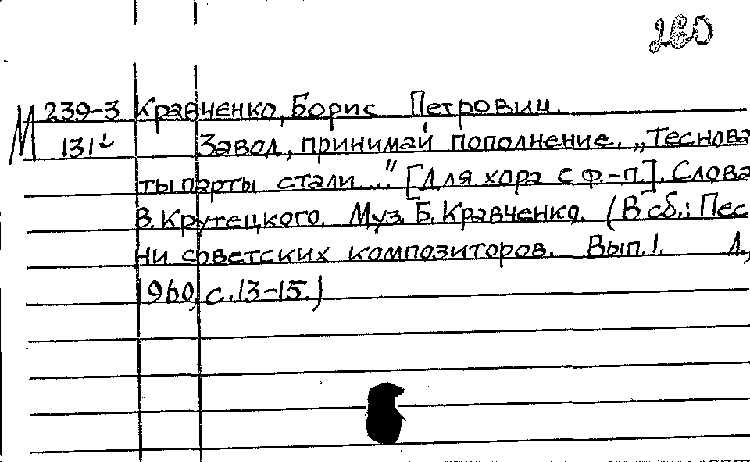 260
М 239-3 Кравченко, Борис Петрович.
131² Завод, принимай пополнение. „Теснова
ты парты стали..." [Для хора с ф-п.]. Слова
В. Крутецкого. Муз. Б. Кравченко. (В сб.: Пес
ни советских композиторов. Вып. 1. Л.,
1960, с. 13-15.)